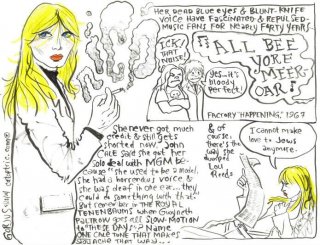 HER DEAD BLUE EYES & BLUNT-KNIFE
VOICE HAVE FASCINATED & REPULSED
MUSIC FANS FOR NEARLY FORTY YEARS
ICK.
THAT
NOISE!
YES...IT'S
BLOODY
PERFECT!
ALL BEE
VORE
MEER
OAR
FACTORY "HAPPENING," 1967
She never got much
credit & still gets
shorted now. JOHN
CALE said she got her
solo deal with MGM be-
cause "she used to be a model.
She had a horrendous voice &
she was deaf in one ear... they
could do something with that".
But remember in THE ROYAL
TENENBAUMS when Gwyneth
PALTROW goes all SLOW-MOTION
to "THESE DAYS"? Name
ONE CALE TUNE THAT MAKES
YOU ACHE THAT WAY...
& of
course,
there's the
way she
dumped
Lou
Reed:
I cannot make
love to Jews
anymore.